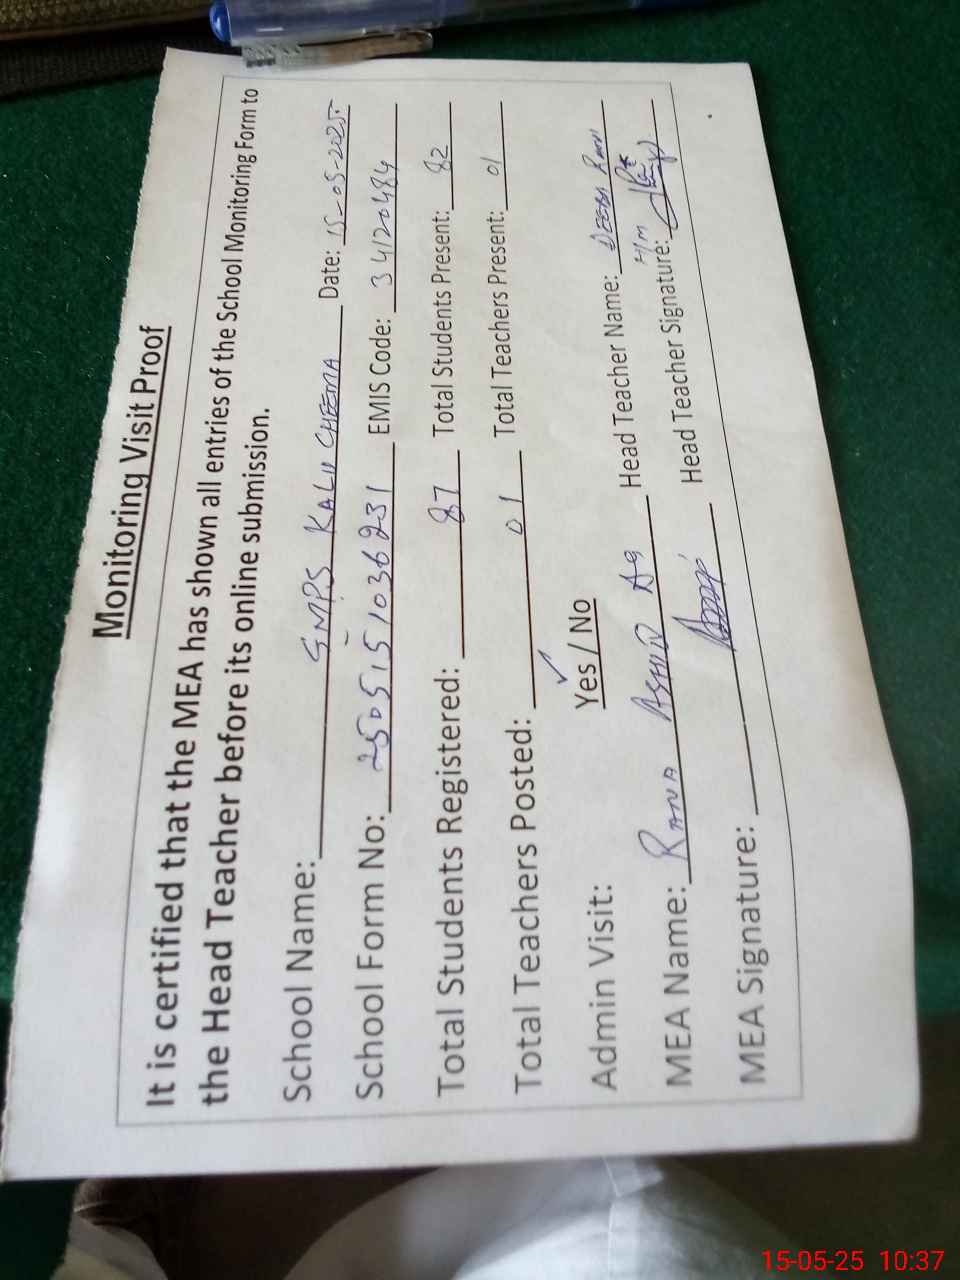 Monitoring Visit Proof
It is certified that the MEA has shown all entries of the School Monitoring Form to
the Head Teacher before its online submission.
School Name: GMPS KALU CHEEMA Date: 15-05-2025
School Form No: 2505151036231 EMIS Code: 34120484
Total Students Registered: 87 Total Students Present: 82
Total Teachers Posted: 01 Total Teachers Present: 01
Admin Visit: Yes / No
MEA Name: RANA Head Teacher Name:
H/M
MEA Signature: Head Teacher Signature:
15-05-25 10:37